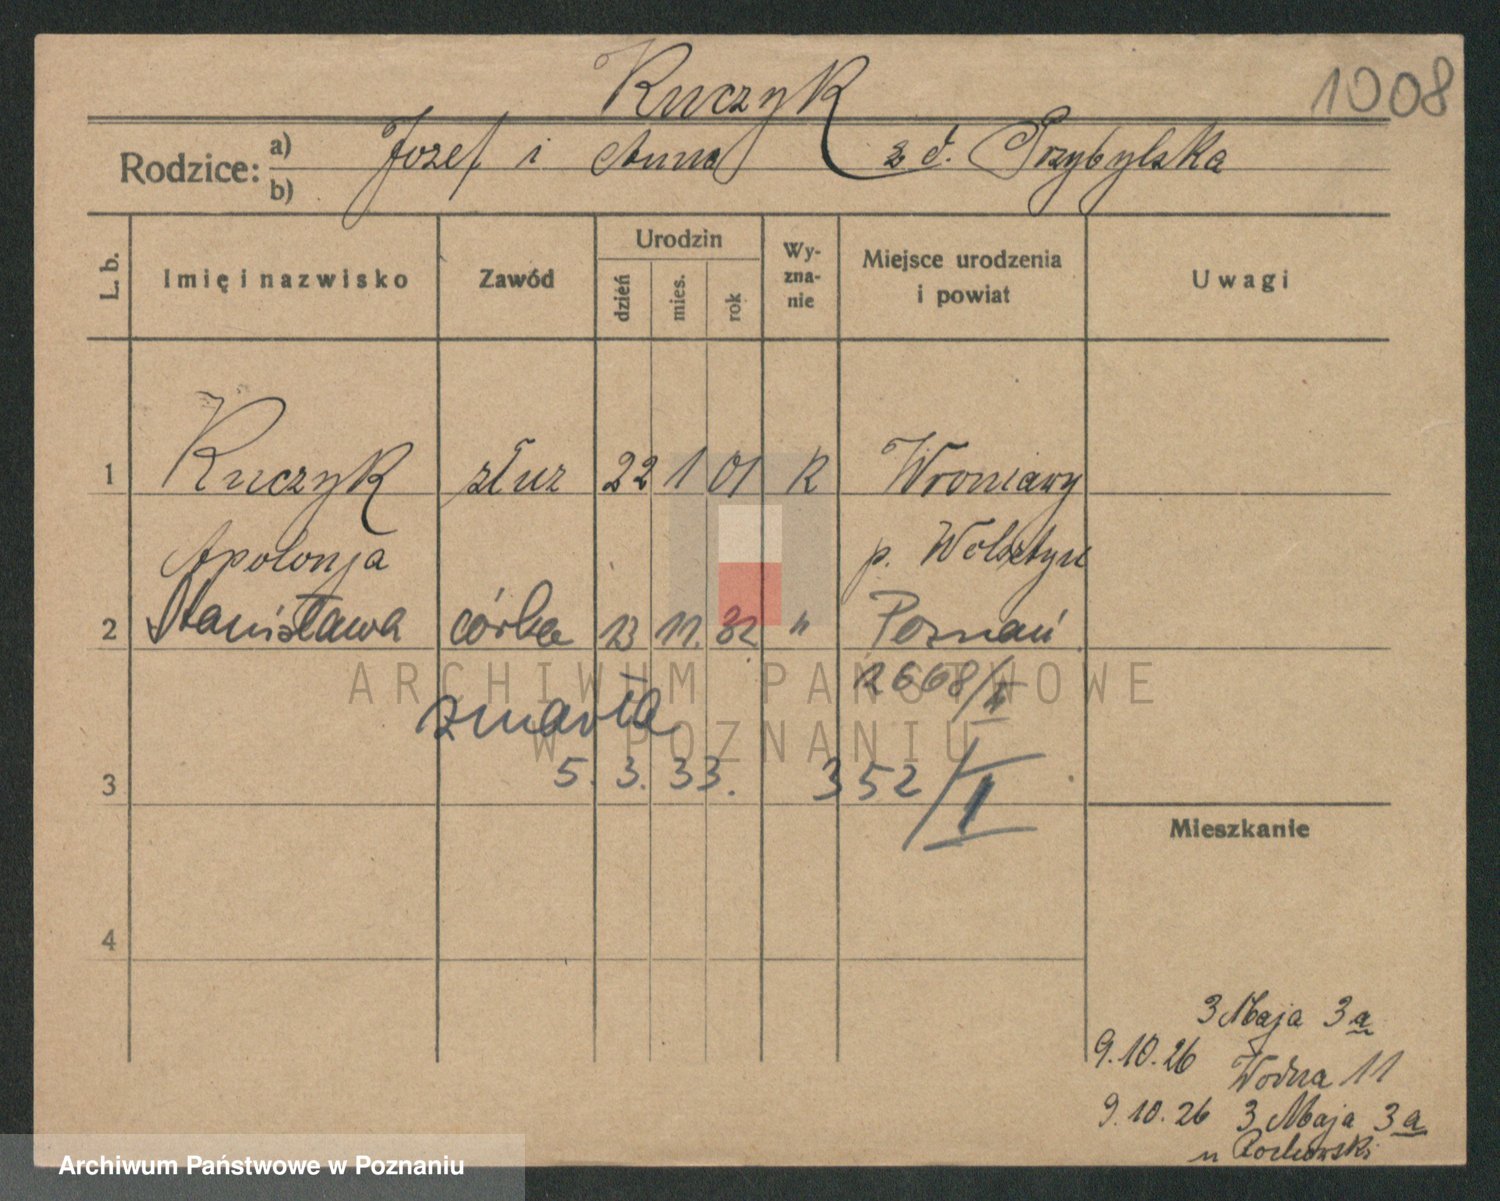 Kuczyk
1008
Rodzice: a) Józef i Anna z d. Przybylska
b)
L. b. Imię i nazwisko Zawód Urodzin dzień mies. rok Wy-zna-nie Miejsce urodzenia i powiat Uwagi
1 Kuczyk służ 22 1 01 R Wroniawy
Apolonja p. Wolsztyn
2 Stanisława córka 13 11. 32 " Poznań
2668/II
zmarła
3 5. 3. 33. 352/I
Mieszkanie
4
3 Maja 3a
9.10.26 Wodna 11
9.10.26 3 Maja 3a
u
ARCHIWUM PAŃSTWOWE
W POZNANIU
Archiwum Państwowe w Poznaniu